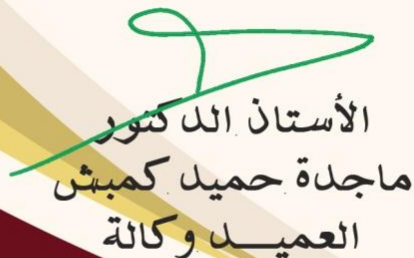 الأستاذ الدكتور
ماجدة حميد كمبش
العميد وكالة